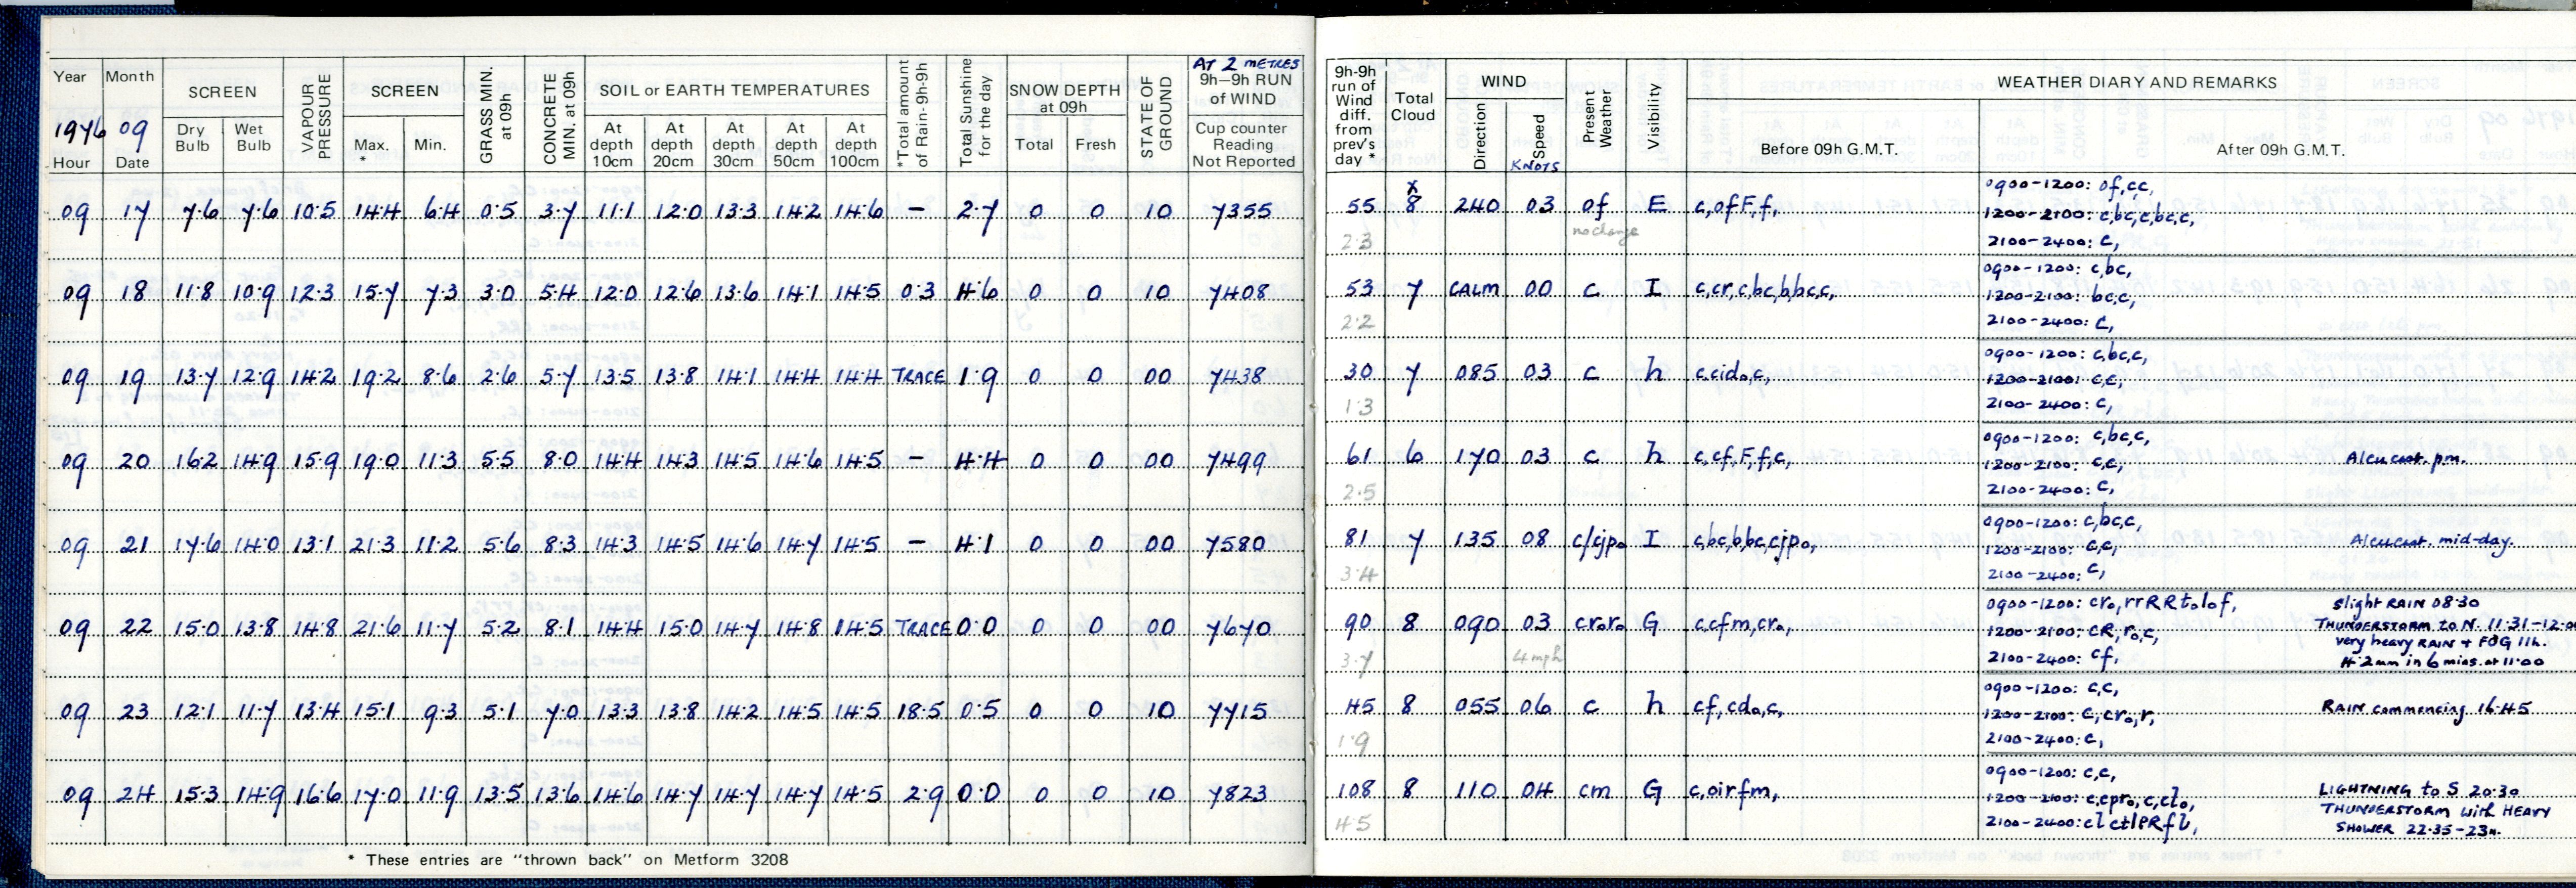 Year Month SCREEN VAPOUR PRESSURE SCREEN GRASS MIN. at 09h CONCRETE MIN. at 09h SOIL or EARTH TEMPERATURES *Total amount of Rain-9h-9h Total Sunshine for the day SNOW DEPTH at 09h STATE OF GROUND AT 2 METRES 9h—9h RUN of WIND
1976 09 Dry Bulb Wet Bulb Max. * Min. At depth 10cm At depth 20cm At depth 30cm At depth 50cm At depth 100cm Total Fresh Cup counter Reading Not Reported
Hour Date
09 17 7.6 7.6 10.5 14.4 6.4 0.5 3.7 11.1 12.0 13.3 14.2 14.6 — 2.7 0 0 10 7355
09 18 11.8 10.9 12.3 15.7 7.3 3.0 5.4 12.0 12.6 13.6 14.1 14.5 0.3 4.6 0 0 10 7408
09 19 13.7 12.9 14.2 19.2 8.6 2.6 5.7 13.5 13.8 14.1 14.4 14.4 TRACE 1.9 0 0 00 7438
09 20 16.2 14.9 15.9 19.0 11.3 5.5 8.0 14.4 14.3 14.5 14.6 14.5 — 4.4 0 0 00 7499
09 21 17.6 14.0 13.1 21.3 11.2 5.6 8.3 14.3 14.5 14.6 14.7 14.5 — 4.1 0 0 00 7580
09 22 15.0 13.8 14.8 21.6 11.7 5.2 8.1 14.4 15.0 14.7 14.8 14.5 TRACE 0.0 0 0 00 7670
09 23 12.1 11.7 13.4 15.1 9.3 5.1 7.0 13.3 13.8 14.2 14.5 14.5 18.5 0.5 0 0 10 7715
09 24 15.3 14.9 16.6 17.0 11.9 13.5 13.6 14.6 14.7 14.7 14.7 14.5 2.9 0.0 0 0 10 7823
* These entries are "thrown back" on Metform 3208
9h-9h run of Wind diff. from prev's day * Total Cloud WIND Direction Speed KNOTS Present Weather Visibility WEATHER DIARY AND REMARKS
Before 09h G.M.T. After 09h G.M.T.
55 x 8 240 03 of E c,ofF,f,
2.3 no change
0900-1200: of,cc,
1200-2100: c,bc,c,bc,c,
2100-2400: c,
53 7 CALM 00 c I c,cr,c,bc,b,bc,c,
2.2
0900-1200: c,bc,
1200-2100: bc,c,
2100-2400: c,
30 7 085 03 c h c,cido,c,
1.3
0900-1200: c,bc,c,
1200-2100: c,c,
2100-2400: c,
61 6 170 03 c h c,cf,F,f,c,
2.5
0900-1200: c,bc,c,
1200-2100: c,c, Alcucast. pm.
2100-2400: c,
81 7 135 08 c/cjpo I c,bc,b,bc,cjpo,
3.4
0900-1200: c,bc,c,
1200-2100: c,c, Alcucast. mid-day.
2100-2400: c,
90 8 090 03 croro G c,cfm,cro,
3.7 4 mph
0900-1200: cro,rrRRtolof, Slight RAIN 08.30
1200-2100: cR,ro,c, THUNDERSTORM to N. 11.31-12.00
2100-2400: cf, very heavy RAIN + FOG 11h.
4.2mm in 6 mins. at 11.00
45 8 055 06 c h cf,cdo,c,
1.9
0900-1200: c,c,
1200-2100: c,cro,r, RAIN commencing 16.45
2100-2400: c,
108 8 110 04 cm G c,oirfm,
4.5
0900-1200: c,c,
1200-2100: c,cpro,c,clo, LIGHTNING to S 20.30
2100-2400: cl ctlPRfl, THUNDERSTORM with HEAVY
SHOWER 22.35-23h.